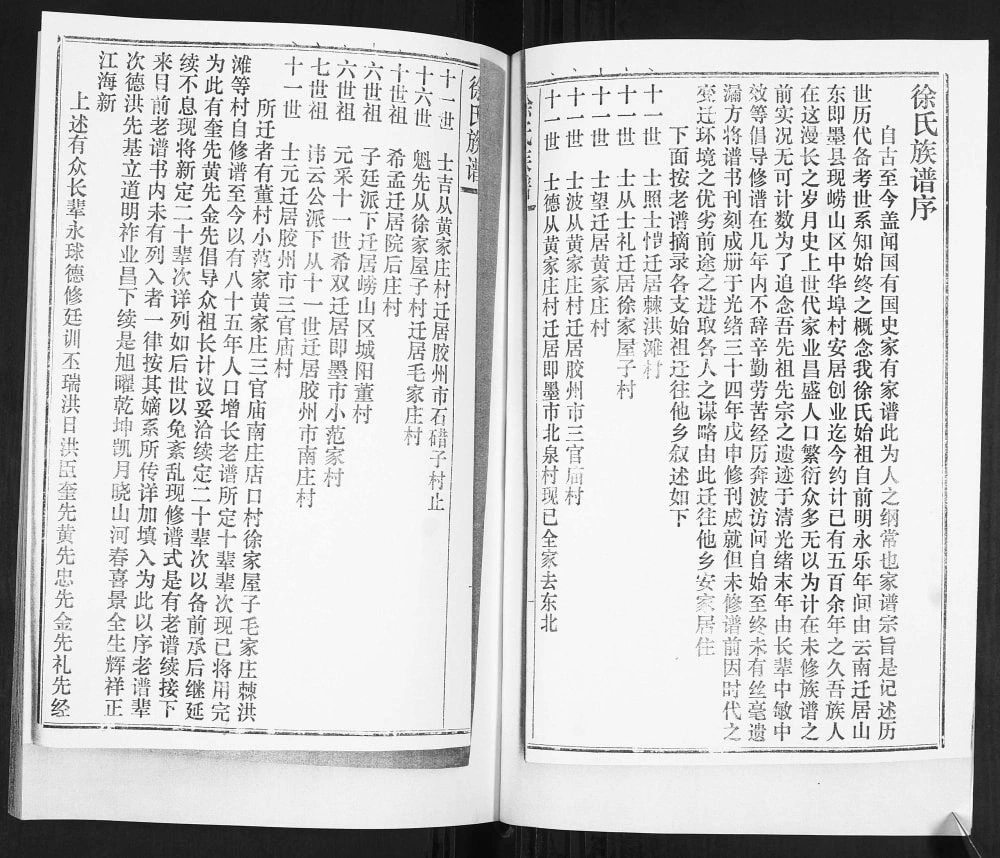 徐氏族谱序
自古至今盖闻国有国史家有家谱此为人之纲常也家谱宗旨是记述历
世历代备考世系知始终之概念我徐氏始祖自前明永乐年间由云南迁居山
东即墨县现崂山区中华埠村安居创业迄今约计已有五百余年之久吾族人
在这漫长之岁月史上世代家业昌盛人口繁衍众多无以为计在未修族谱之
前实况无可计数为了追念吾先祖先宗之遗迹于清光绪末年由长辈中敏中
效等倡导修谱在几年内不辞辛勤劳苦经历奔波访问自始至终未有丝毫遗
漏方将谱书刊刻成册于光绪三十四年戊申修刊成就但未修谱前因时代之
变迁环境之优劣前途之进取各人之谋略由此迁往他乡安家居住
下面按老谱摘录各支始祖迁往他乡叙述如下
十一世 士照士恺迁居棘洪滩村
十一世 士从士礼迁居徐家屋子村
十一世 士望迁居黄家庄村
十一世 士波从黄家庄村迁居胶州市三官庙村
十一世 士德从黄家庄村迁居即墨市北泉村现已全家去东北
徐氏族谱
十一世 士吉从黄家庄村迁居胶州市石碏子村止
十六世 魁先从徐家屋子村迁居毛家庄村
十世祖 希孟迁居院后庄村
六世祖 子廷派下迁居崂山区城阳董村
六世祖 元采十一世希双迁居即墨市小范家村
七世祖 讳云公派下从十一世迁居胶州市南庄村
十一世 士元迁居胶州市三官庙村
所迁者有董村小范家黄家庄三官庙南庄店口村徐家屋子毛家庄棘洪
滩等村自修谱至今以有八十五年人口增长老谱所定十辈辈次现已将用完
为此有奎先黄先金先倡导众祖长计议妥洽续定二十辈次以备前承后继延
续不息现将新定二十辈次详列如后世以免紊乱现修谱式是有老谱续接下
来目前老谱书内未有列入者一律按其嫡系所传详加填入为此以序老谱辈
次德洪先基立道明祚业昌下续是旭曜乾坤凯月晓山河春喜景全生辉祥正
江海新
上述有众长辈永球德修廷训丕瑞洪日洪臣奎先黄先忠先金先礼先经